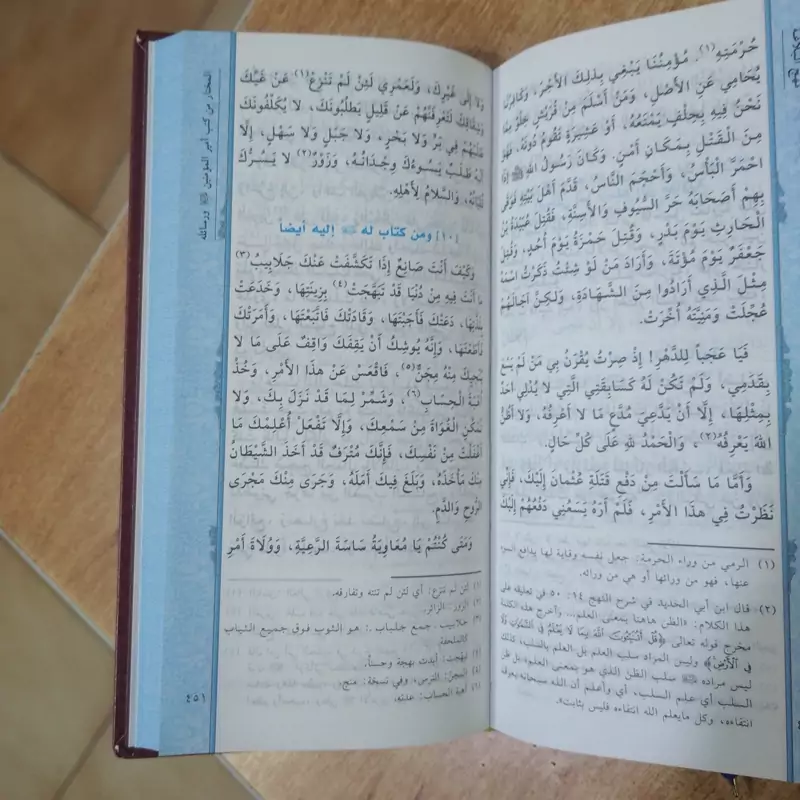 حُرْمَتِهِ(١). مُؤْمِنُنَا يَبْغِي بِذلِكَ الْأَجْرَ، وَكَافِرُنَا
يُحَامِي عَنِ الْأَصْلِ، وَمَنْ أَسْلَمَ مِنْ قُرَيْشٍ خِلْوٌ مِمَّا
نَحْنُ فِيهِ بِحِلْفٍ يَمْنَعُهُ، أَوْ عَشِيرَةٍ تَقُومُ دُونَهُ، فَهُوَ
مِنَ الْقَتْلِ بِمَكَانِ أَمْنٍ. وَكَانَ رَسُولُ اللهِ ﷺ إِذَا
احْمَرَّ الْبَأْسُ، وَأَحْجَمَ النَّاسُ، قَدَّمَ أَهْلَ بَيْتِهِ فَوَقَى
بِهِمْ أَصْحَابَهُ حَرَّ السُّيُوفِ وَالْأَسِنَّةِ، فَقُتِلَ عُبَيْدَةُ بْنُ
الْحَارِثِ يَوْمَ بَدْرٍ، وَقُتِلَ حَمْزَةُ يَوْمَ أُحُدٍ، وَقُتِلَ
جَعْفَرٌ يَوْمَ مُؤْتَةَ، وَأَرَادَ مَنْ لَوْ شِئْتُ ذَكَرْتُ اسْمَهُ
مِثْلَ الَّذِي أَرَادُوا مِنَ الشَّهَادَةِ، وَلكِنَّ آجَالَهُمْ
عُجِّلَتْ وَمَنِيَّتَهُ أُخِّرَتْ.
فَيَا عَجَباً لِلدَّهْرِ! إِذْ صِرْتُ يُقْرَنُ بِي مَنْ لَمْ يَسْعَ
بِقَدَمِي، وَلَمْ تَكُنْ لَهُ كَسَابِقَتِي الَّتِي لَا يُدْلِي أَحَدٌ
بِمِثْلِهَا، إِلَّا أَنْ يَدَّعِيَ مُدَّعٍ مَا لَا أَعْرِفُهُ، وَلَا أَظُنُّ
اللهَ يَعْرِفُهُ(٢)، وَالْحَمْدُ لِلهِ عَلَى كُلِّ حَالٍ.
وَأَمَّا مَا سَأَلْتَ مِنْ دَفْعِ قَتَلَةِ عُثْمَانَ إِلَيْكَ، فَإِنِّي
نَظَرْتُ فِي هذَا الْأَمْرِ، فَلَمْ أَرَهُ يَسَعُنِي دَفْعُهُمْ إِلَيْكَ
(١) الرمي من وراء الحرمة: جعل نفسه وقاية لها يدافع السوء
عنها، فهو من ورائها أو هي من ورائه.
(٢) قال ابن أبي الحديد في شرح النهج ١٤: ٥٠ في تعليقه على
هذا الكلام: «الظن هاهنا بمعنى العلم... وأخرج هذه الكلمة
مخرج قوله تعالى ﴿قُلْ أَتُنَبِّئُونَ اللَّهَ بِمَا لَا يَعْلَمُ فِي السَّمَوَاتِ وَلَا
فِي الْأَرْضِ﴾ وليس المراد سلب العلم بل العلم بالسلب، كذلك
ليس مراده سلب الظن الذي هو بمعنى العلم، بل ظن
السلب أي علم السلب، أي وأعلم أن الله سبحانه يعرف
انتفاءه، وكل مايعلم الله انتفاءه فليس بثابت».
المختار من كتب أمير المؤمنين ورسائله
وَلَا إِلَى غَيْرِكَ، وَلَعَمْرِي لَئِنْ لَمْ تَنْزِعْ(١) عَنْ غَيِّكَ
وَشِقَاقِكَ لَتَعْرِفَنَّهُمْ عَنْ قَلِيلٍ يَطْلُبُونَكَ، لَا يُكَلِّفُونَكَ
طَلَبَهُمْ فِي بَرٍّ وَلَا بَحْرٍ، وَلَا جَبَلٍ وَلَا سَهْلٍ، إِلَّا
أَنَّهُ طَلَبٌ يَسُوءُكَ وِجْدَانُهُ، وَزَوْرٌ(٢) لَا يَسُرُّكَ
لُقْيَانُهُ، وَالسَّلَامُ لِأَهْلِهِ.
[١٠] ومن كتاب له إليه أيضاً
وَكَيْفَ أَنْتَ صَانِعٌ إِذَا تَكَشَّفَتْ عَنْكَ جَلَابِيبُ(٣)
مَا أَنْتَ فِيهِ مِنْ دُنْيَا قَدْ تَبَهَّجَتْ(٤) بِزِينَتِهَا، وَخَدَعَتْ
بِلَذَّتِهَا، دَعَتْكَ فَأَجَبْتَهَا، وَقَادَتْكَ فَاتَّبَعْتَهَا، وَأَمَرَتْكَ
فَأَطَعْتَهَا، وَإِنَّهُ يُوشِكُ أَنْ يَقِفَكَ وَاقِفٌ عَلَى مَا لَا
يُنْجِيكَ مِنْهُ مِجَنٌّ(٥)، فَاقْعَسْ عَنْ هذَا الْأَمْرِ، وَخُذْ
أُهْبَةَ الْحِسَابِ(٦)، وَشَمِّرْ لِمَا قَدْ نَزَلَ بِكَ، وَلَا
تُمَكِّنِ الْغُوَاةَ مِنْ سَمْعِكَ، وَإِلَّا تَفْعَلْ أُعْلِمْكَ مَا
أَغْفَلْتَ مِنْ نَفْسِكَ، فَإِنَّكَ مُتْرَفٌ قَدْ أَخَذَ الشَّيْطَانُ
مِنْكَ مَأْخَذَهُ، وَبَلَغَ فِيكَ أَمَلَهُ، وَجَرَى مِنْكَ مَجْرَى
الرُّوحِ وَالدَّمِ.
وَمَتَى كُنْتُمْ يَا مُعَاوِيَةُ سَاسَةَ الرَّعِيَّةِ، وَوُلَاةَ أَمْرِ
(١) لئن لم تنزع: أي لئن لم تنته وتفارقه.
(٢) الزور: الزائر.
(٣) جلابيب: جمع جلباب.: هو الثوب فوق جميع الثياب
كالملحفة.
(٤) تبهجت: أبدت بهجة وحسناً.
(٥) المجن: الترس، وفي نسخة: منج.
(٦) أهبة الحساب: عدته.
٤٥١